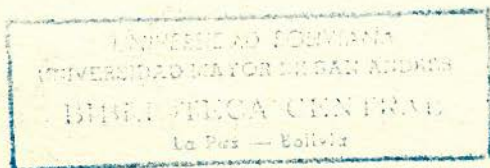 UNIVERSIDAD BOLIVIANA
UNIVERSIDAD MAYOR DE SAN ANDRES
BIBLIOTECA CENTRAL
La Paz — Bolivia